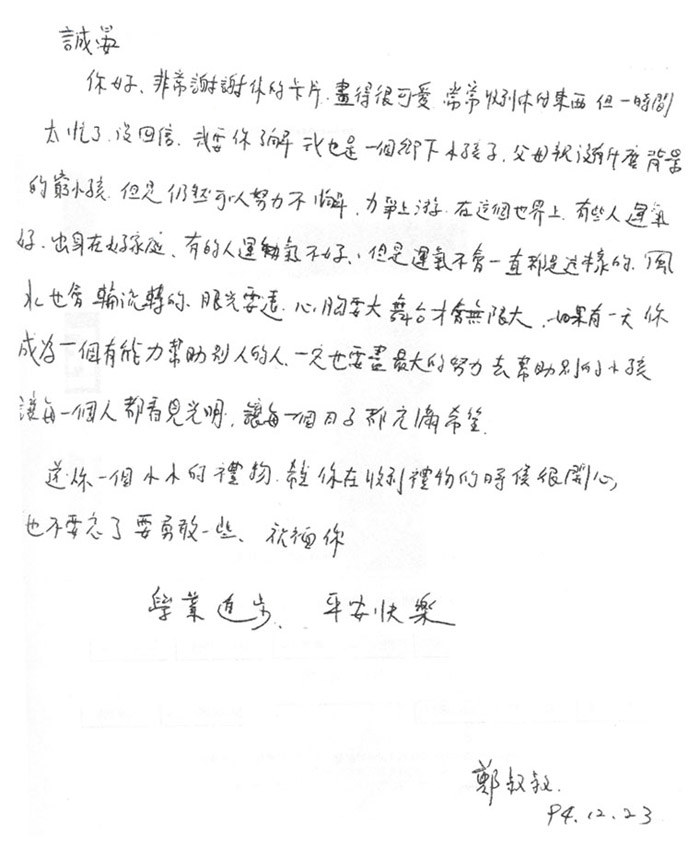 誠晏
你好、非常謝謝你的卡片.畫得很可愛.常常收到你的東西但一時間
太忙了.沒回信.我要你了解我也是一個鄉下小孩子.父母親沒有什麼背景
的窮小孩.但是仍然可以努力不懈.力爭上游.在這個世界上.有些人運氣
好.出身在好家庭、有的人運氣不好、但是運氣不會一直都是這樣的.風
水也會輪流轉的.眼光要遠.心胸要大舞台才會無限大.如果有一天你
成為一個有能力幫助別人的人.一定也要盡最大的努力去幫助別的小孩
讓每一個人都看見光明.讓每一個日子都充滿希望.
送你一個小小的禮物.希你在收到禮物的時候很開心
也不要忘了要勇敢一些、祝福你
學業進步、平安快樂
鄭叔叔.
94.12.23